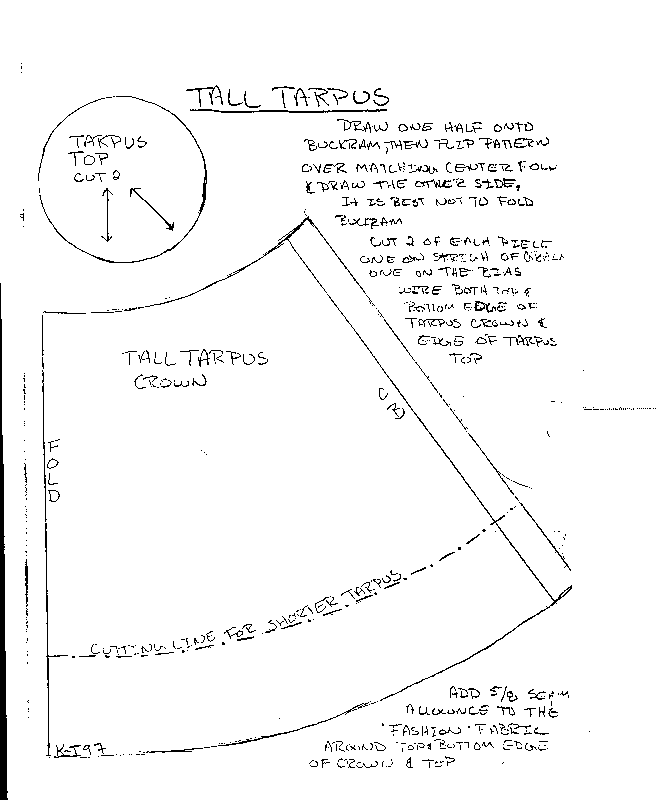 TALL TARPUS
TARPUS
TOP
CUT 2
DRAW ONE HALF ONTO
BUCKRAM, THEN FLIP PATTERN
OVER MATCHING CENTER FOLD
& DRAW THE OTHER SIDE.
IT IS BEST NOT TO FOLD
BUCKRAM
CUT 2 OF EACH PIECE
ONE ON STRAIGH OF GRAIN
ONE ON THE BIAS
WIRE BOTH TOP &
BOTTOM EDGE OF
TARPUS CROWN &
EDGE OF TARPUS
TOP
TALL TARPUS
CROWN
CB
FOLD
CUTTING LINE FOR SHORTER TARPUS
ADD 5/8 SEAM
ALLOWNCE TO THE
"FASHION" FABRIC
AROUND TOP & BOTTOM EDGE
OF CROWN & TOP